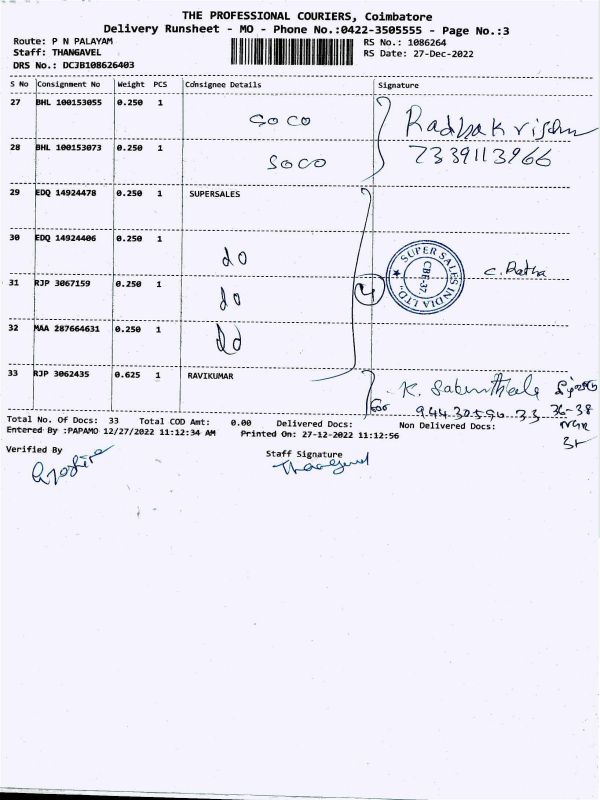 THE PROFESSIONAL COURIERS, Coimbatore
Delivery Runsheet - MO - Phone No.:0422-3505555 - Page No.:3
Route: P N PALAYAM
Staff: THANGAVEL
DRS No.: DCJB108626403
RS No.: 1086264
RS Date: 27-Dec-2022
S No Consignment No Weight PCS Consignee Details Signature
27 BHL 100153055 0.250 1 SOCO
Radhakrishn
28 BHL 100153073 0.250 1 SOCO
7339113966
29 EDQ 14924478 0.250 1 SUPERSALES
30 EDQ 14924406 0.250 1 do
SUPER SALES INDIA LTD.,
CBE-37.
4
31 RJP 3067159 0.250 1 do
32 MAA 287664631 0.250 1 do
33 RJP 3062435 0.625 1 RAVIKUMAR
for
36-38
Total No. Of Docs: 33 Total COD Amt: 0.00 Delivered Docs: Non Delivered Docs:
Entered By :PAPAMO 12/27/2022 11:12:34 AM Printed On: 27-12-2022 11:12:56
Verified By
Staff Signature